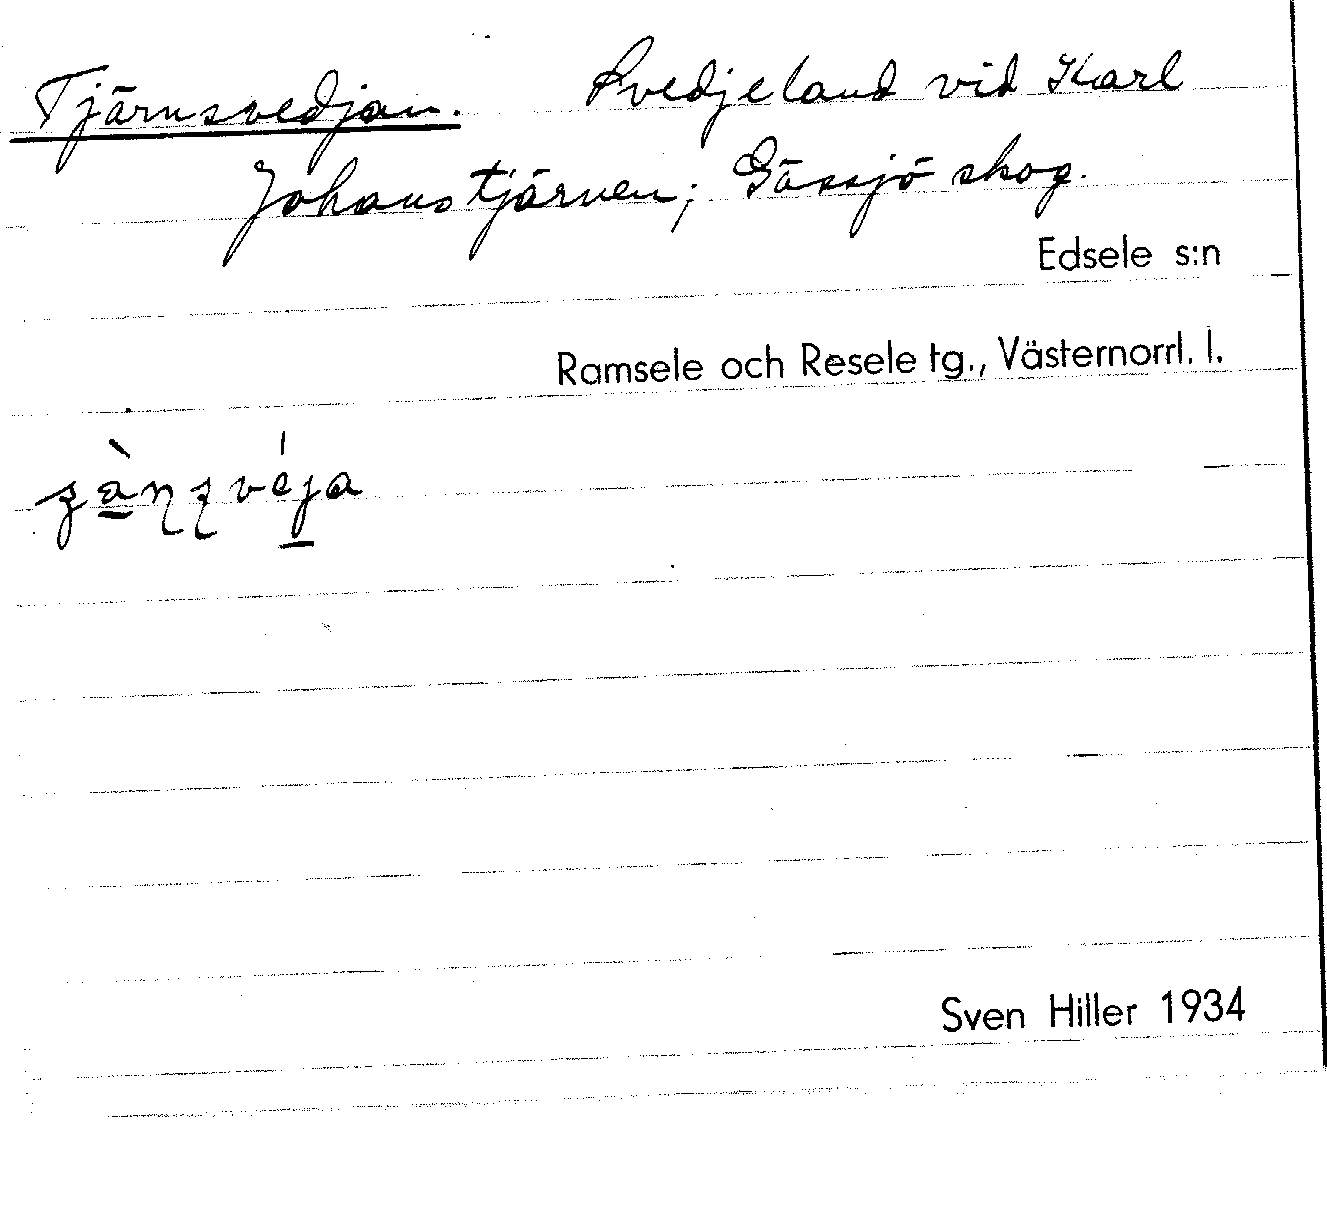 Tjärnsvedjan. Svedjeland vid Karl
Johanstjärnen; Gässjö skog.
Edsele s:n
Ramsele och Resele tg., Västernorrl. l.
Sven Hiller 1934